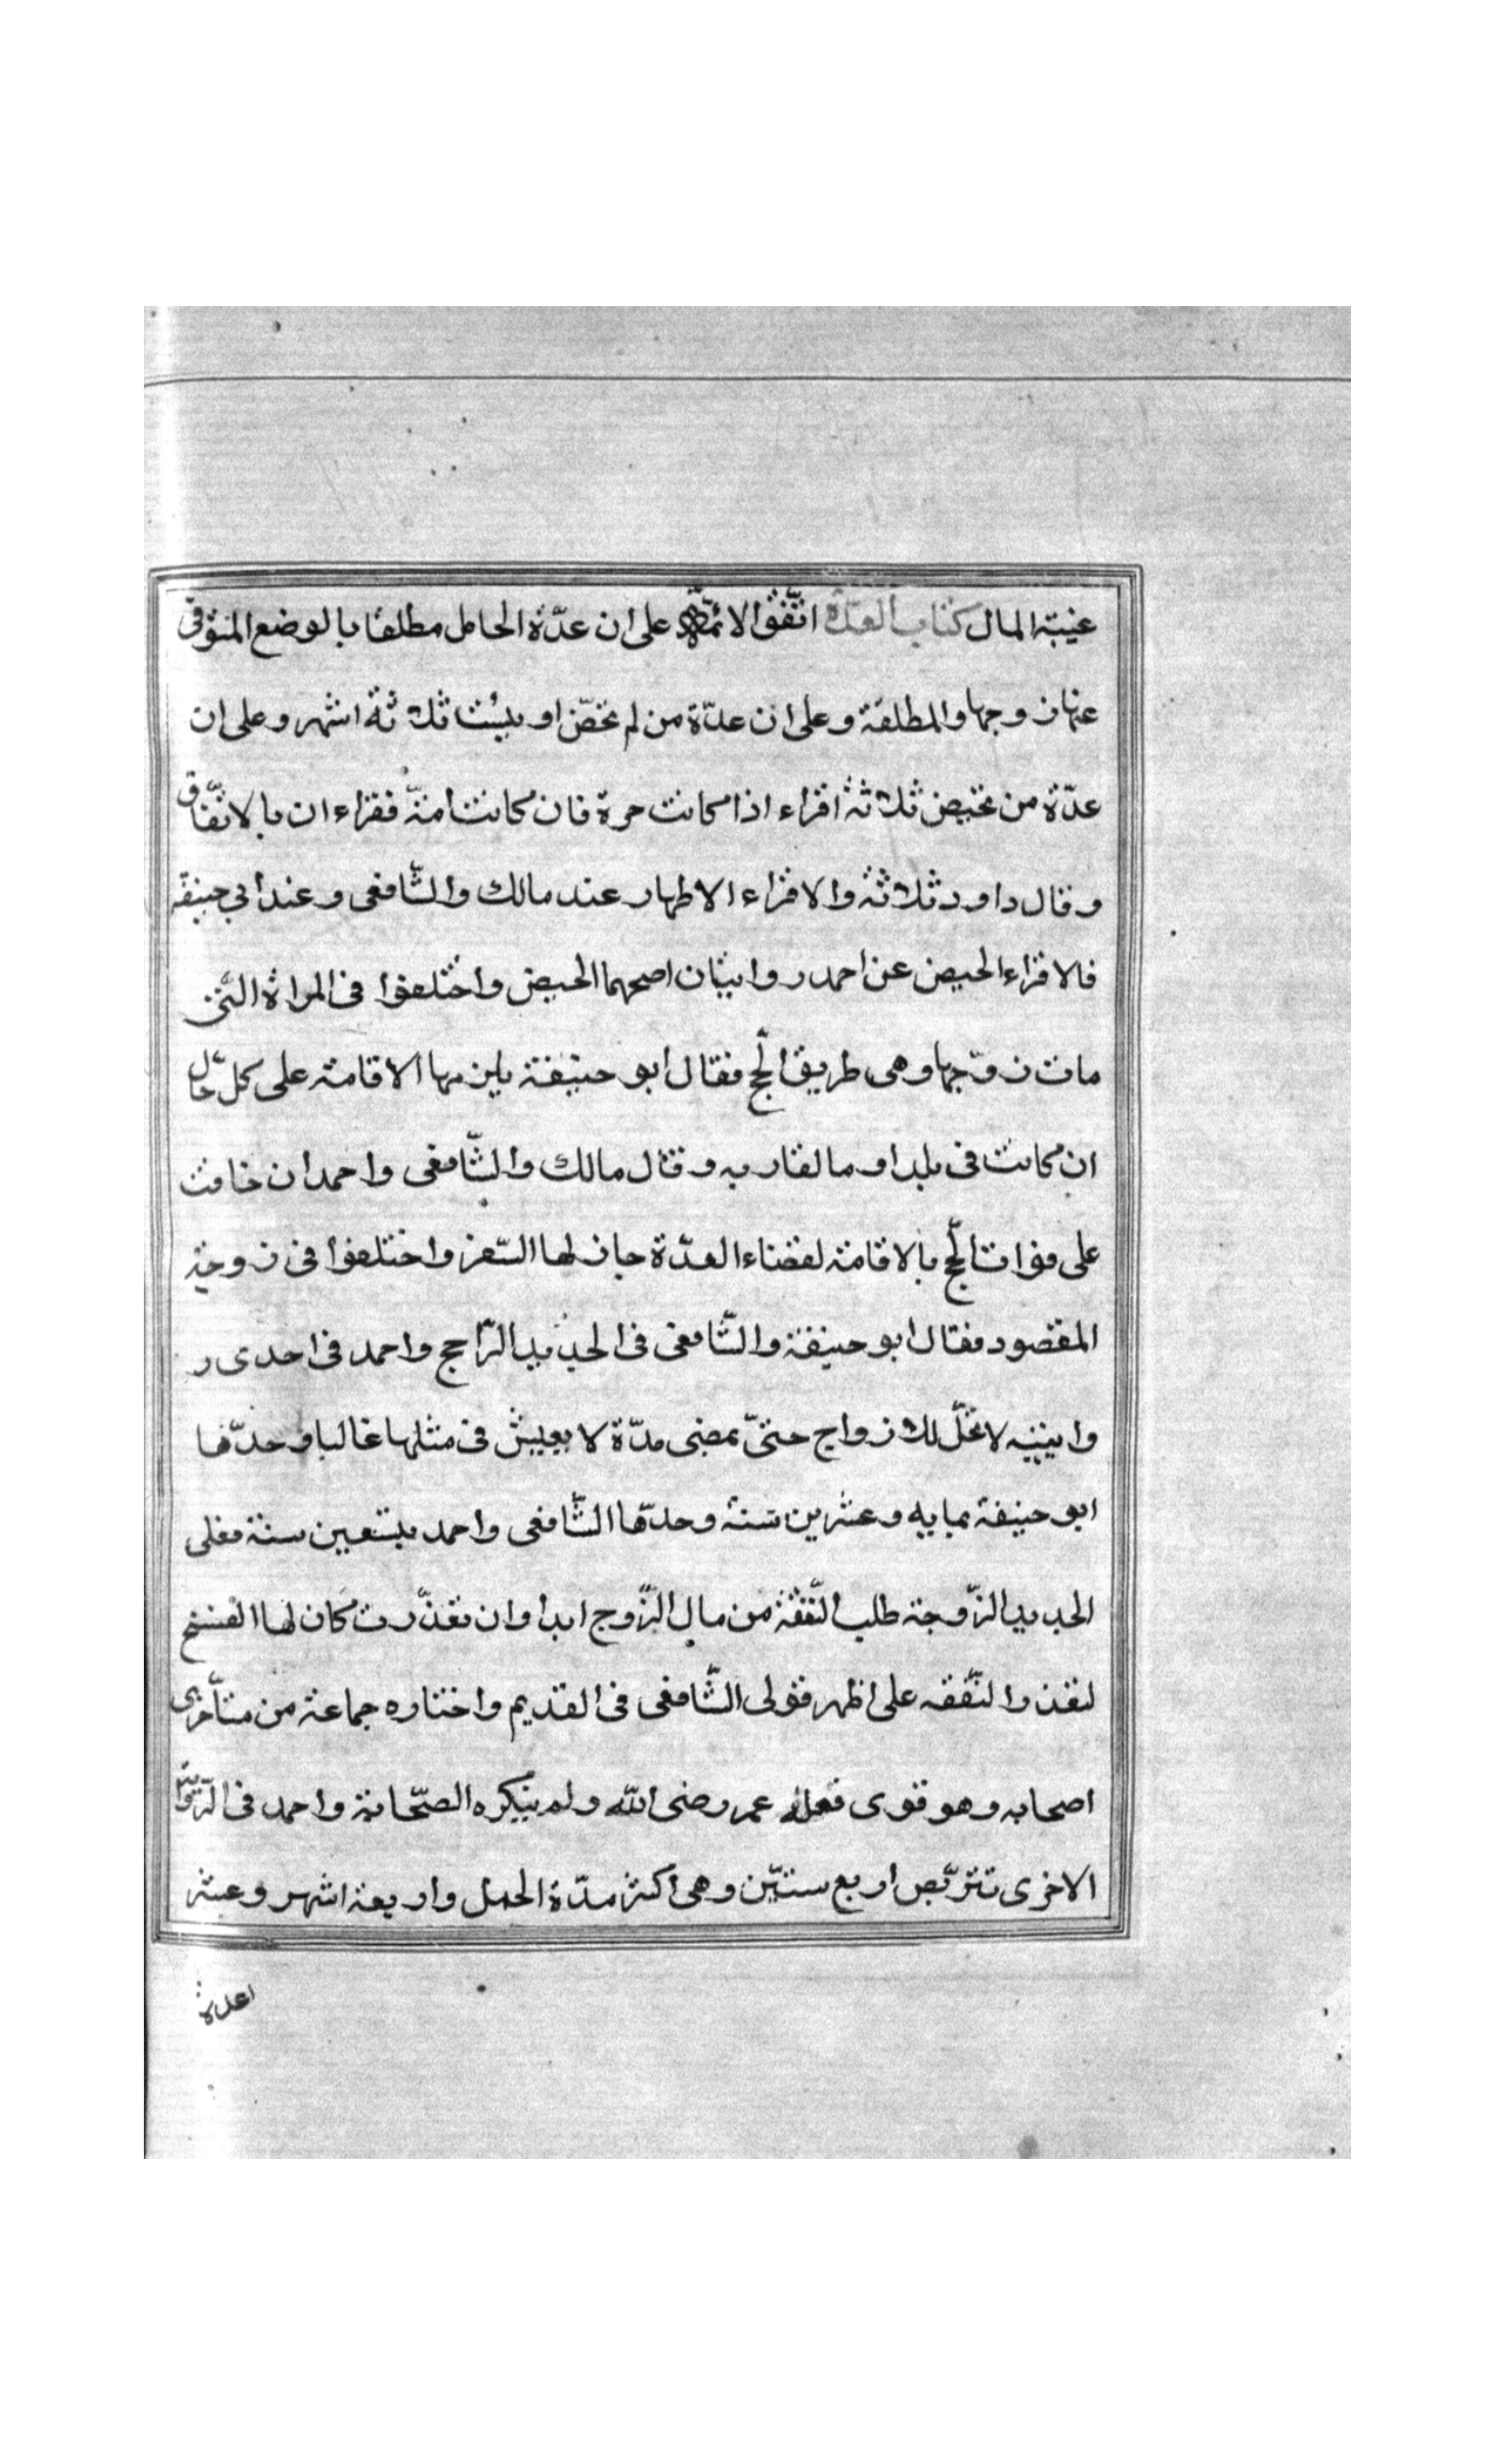 غيبة المال كتاب العدّة اتّفق الائمّة على ان عدّة الحامل مطلقا بالوضع المتوفّى
عنها زوجها والمطلقة وعلى ان عدّة من لم تحض او يئست ثلاثة اشهر وعلى ان
عدّة من تحيض ثلاثة اقراء اذا كانت حرة فان كانت امة فقراءان بالاتّفاق
وقال داود ثلاثة والاقراء الاطهار عند مالك والشّافعى وعند أبي حنيفة
فالاقراء الحيض عن احمد روايتان اصحهما الحيض واختلفوا فى المراة التّى
مات زوّجها وهى طريق الحّج فقال ابو حنيفة يلزمها الاقامة على كل حال
ان كانت فى بلد او مالقاربه وقال مالك والشّافعى واحمد ان خافت
على فوات الحّج بالاقامة لقضاء العدّة جاز لها السّفر واختلفوا فى زوجة
المفقصود فقال ابو حنيفة والشّافعى فى الجديد الرّاجح واحمد فى احدى ر
وايتيه لا تحلّ للازواج حتىّ يمضى مدّة لا يعيش فى مثلها غالبا وحدّها
ابو حنيفة بمايه وعشرين سنة وحدّها الشّافعى واحمد بتسعين سنة فعلى
الجديد الزّوجة طلب النّفقة من مال الزّوج ابدا وان تعذّرت كان لها الفسخ
لتعذر النّفقه على اظهر قولى الشّافعى فى القديم واختاره جماعة من متأخرى
اصحابه وهو قوى فعله عمر رضى الله ولم ينكره الصّحابة واحمد فى الرّواية
الاخرى تتربّص اربع سنيّن وهى اكثر مدّة الحمل واربعة اشهر وعشر
اعدة